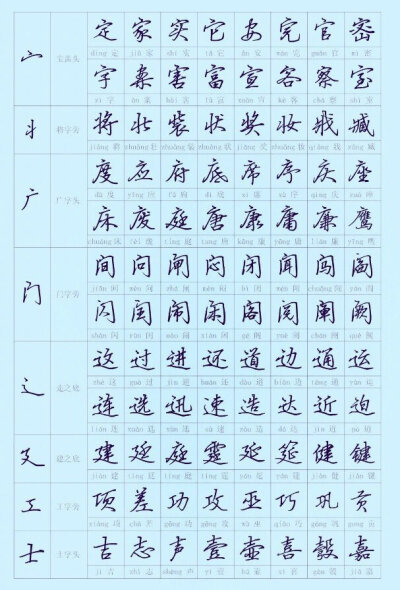 宀 宝盖头 定 家 实 它 安 完 官 密
dìng 定 jiā 家 shí 实 tā 它 ān 安 wán 完 guān 官 mì 密
字 案 害 富 宣 客 察 室
zì 字 àn 案 hài 害 fù 富 xuān 宣 kè 客 chá 察 shì 室
丬 将字旁 将 壮 装 状 奖 妆 戕 臧
jiāng 将 zhuàng 壮 zhuāng 装 zhuàng 状 jiǎng 奖 zhuāng 妆 qiāng 戕 zāng 臧
广 广字头 度 应 府 底 席 序 庆 座
dù 度 yīng 应 fǔ 府 dǐ 底 xí 席 xù 序 qìng 庆 zuò 座
床 废 庭 唐 康 庸 廉 鹰
chuáng 床 fèi 废 tíng 庭 táng 唐 kāng 康 yōng 庸 lián 廉 yīng 鹰
门 门字旁 间 问 闸 闷 闭 闻 闯 阎
jiān 间 wèn 问 zhá 闸 mèn 闷 bì 闭 wén 闻 chuǎng 闯 yán 阎
闪 闰 闹 闲 阁 阅 阐 阙
shǎn 闪 rùn 闰 nào 闹 xián 闲 gé 阁 yuè 阅 chǎn 阐 què 阙
辶 走之底 这 过 进 还 道 边 通 运
zhè 这 guò 过 jìn 进 huán 还 dào 道 biān 边 tōng 通 yùn 运
连 选 迅 速 造 达 近 迫
lián 连 xuǎn 选 xùn 迅 sù 速 zào 造 dá 达 jìn 近 pò 迫
廴 建之底 建 廷 庭 霆 延 筵 健 键
jiàn 建 tíng 廷 tíng 庭 tíng 霆 yán 延 yán 筵 jiàn 健 jiàn 键
工 工字旁 项 差 功 攻 巫 巧 巩 贡
xiàng 项 chā 差 gōng 功 gōng 攻 wū 巫 qiǎo 巧 gǒng 巩 gòng 贡
士 士字头 吉 志 声 壹 壶 喜 毂 嘉
jí 吉 zhì 志 shēng 声 yī 壹 hú 壶 xǐ 喜 gǔ 毂 jiā 嘉